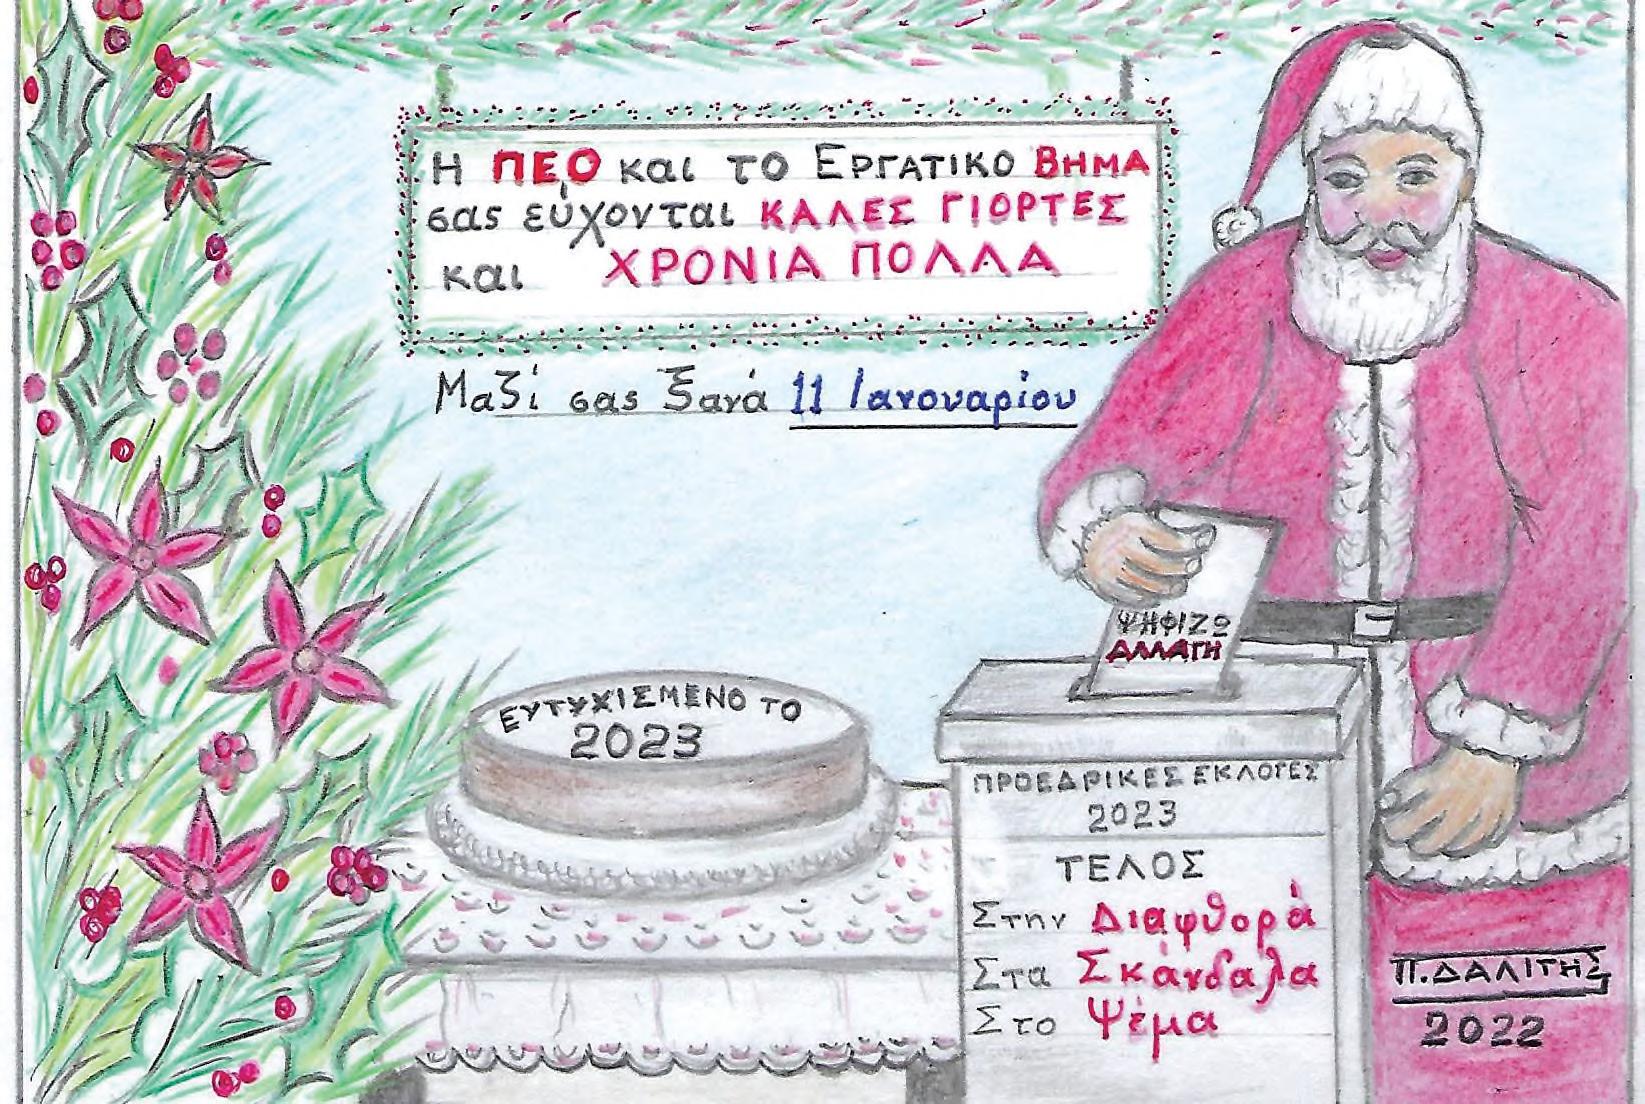 Η ΠΕΟ και το Εργατικο Βημα
σας εύχονται ΚΑΛΕΣ ΓΙΟΡΤΕΣ
και ΧΡΟΝΙΑ ΠΟΛΛΑ
Μαζί σας ξανά 11 Ιανουαρίου
ΨΗΦΙΖΩ
ΑΛΛΑΓΗ
ΕΥΤΥΧΙΣΜΕΝΟ ΤΟ
2023
ΠΡΟΕΔΡΙΚΕΣ ΕΚΛΟΓΕΣ
2023
ΤΕΛΟΣ
Στην Διαφθορά
Στα Σκάνδαλα
Στο Ψέμα
Π.ΔΑΛΙΤΗΣ
2022